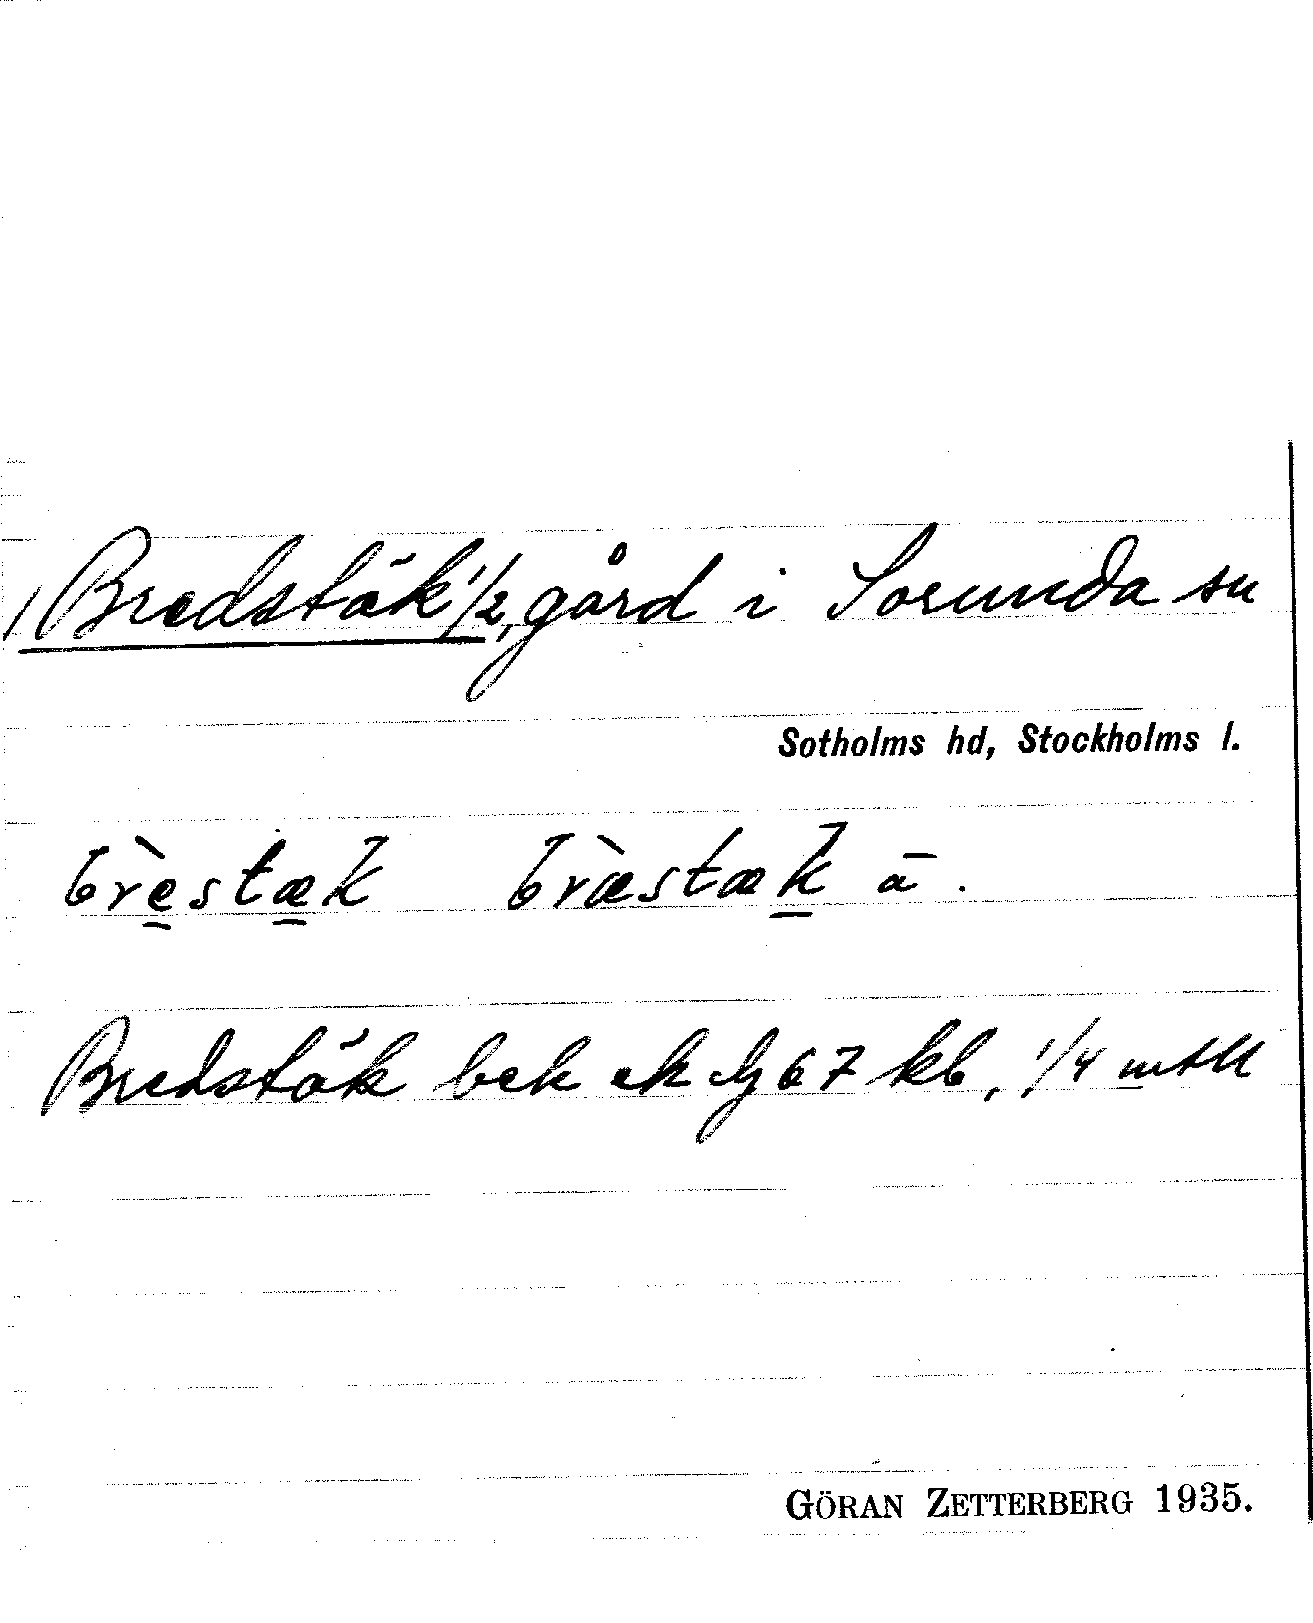 Bredstäk 1/2, gård i Sorunda sn
Sotholms hd, Stockholms l.
brèstæk bræ̀stæk ā.
Bredstäk bek ek bg 67 kb, 1/4 mtll
GÖRAN ZETTERBERG 1935.